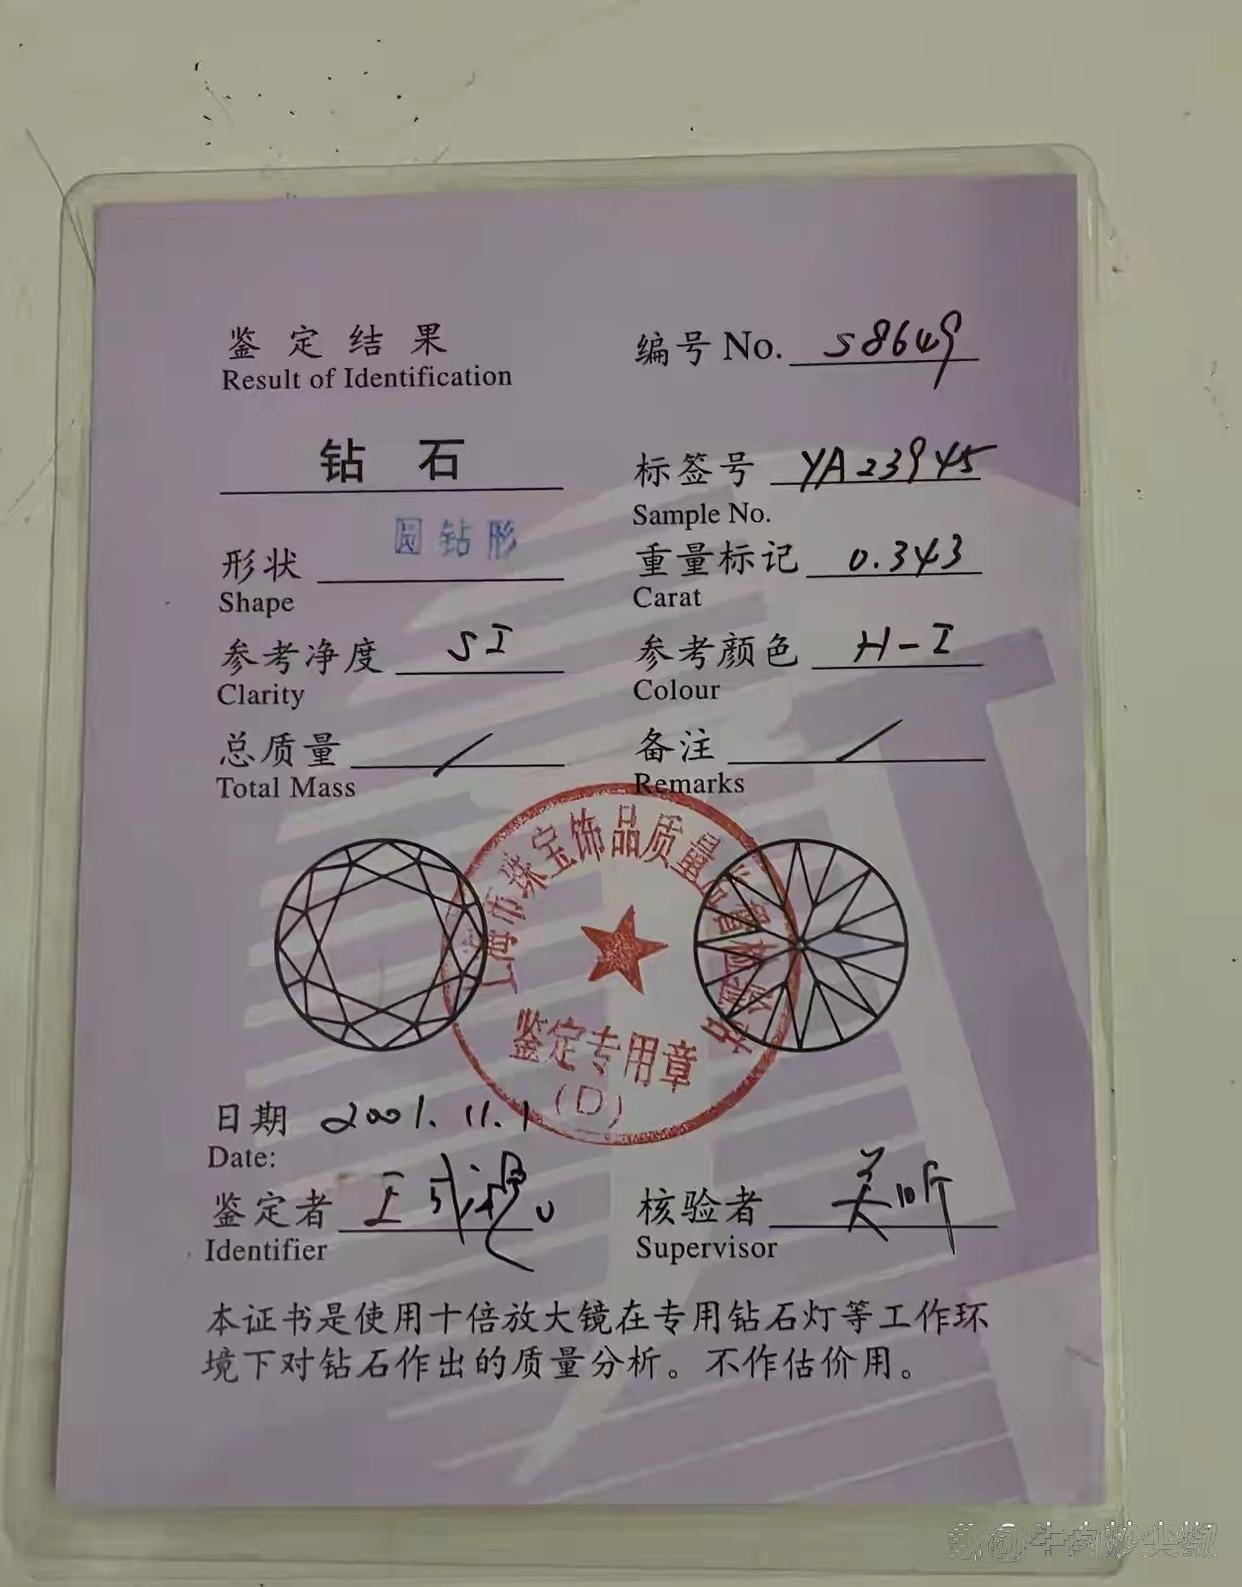 鉴定结果
Result of Identification
编号 No. S8649
钻 石
标签号 YA23945
Sample No.
形状 圆钻形
Shape
重量标记 0.343
Carat
参考净度 SI
Clarity
参考颜色 H-I
Colour
总质量 /
Total Mass
备注 /
Remarks
上海市珠宝饰品质量监督检验站
鉴定专用章
(D)
日期 2001.11.1
Date:
鉴定者
Identifier
核验者
Supervisor
本证书是使用十倍放大镜在专用钻石灯等工作环
境下对钻石作出的质量分析。不作估价用。
@牛肉炒尖椒